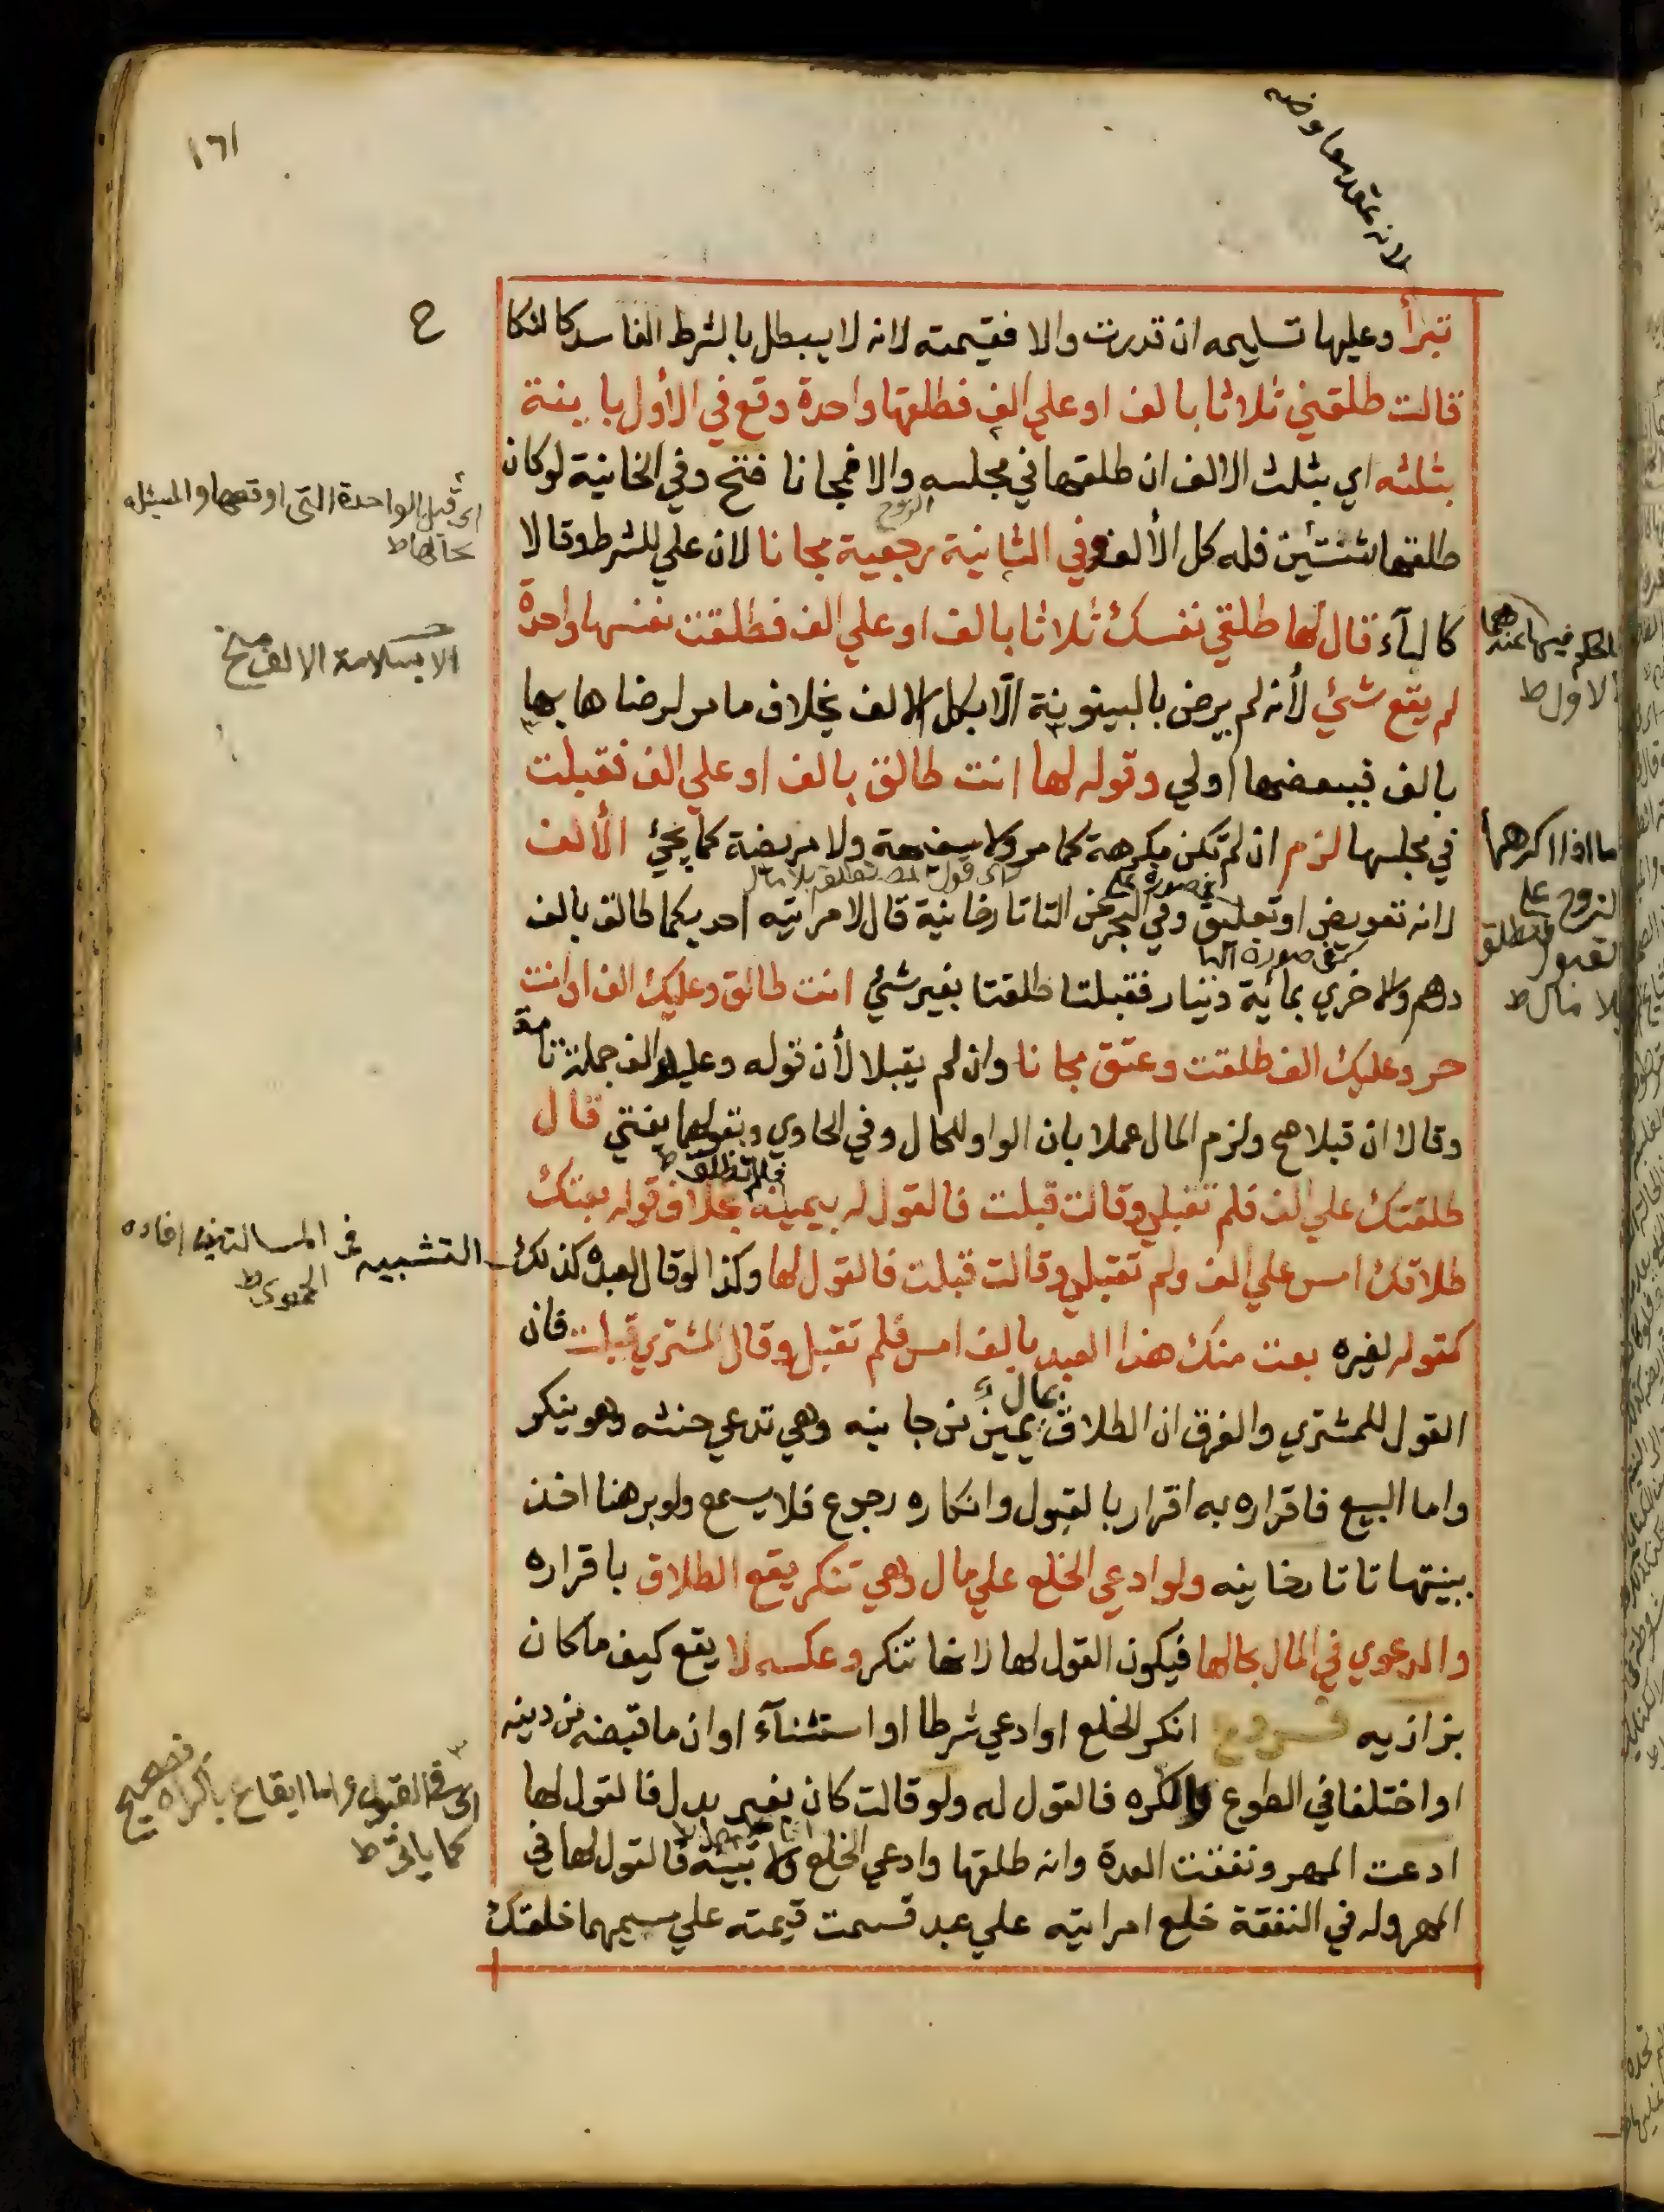 ١٦١
لانه عقد معاوضه
تبرأ وعليها تسليمه ان قدرت والا فقيمته لانه لا يبطل بالشرط الفاسد كالنكا
ح
قالت طلقني ثلاثا بالف او علي الف فطلقها واحدة وقع في الأول باينة
بثلثه اي بثلث الالف ان طلقها في مجلسه والا فمجانا فتح وفي الخانية لو كان
الزوج
طلقها ثنتين فله كل الألف وفي الثانية رجعية مجانا لان علي للشرط وقالا
كالبآء قال لها طلقي نفسك ثلاثا بالف او علي الف فطلقت نفسها واحدة
لم يقع شئ لأنه لم يرض بالبينونة الا بكل الالف بخلاف ما مر لرضاها بها
بالف فببعضها اولي وقوله لها انت طالق بالف او علي الف فقبلت
في مجلسها لزم ان لم تكن مكرهة كما مر ولا سفيهة ولا مريضة كما يجئ الألف
لانه تعويض او تعليق وفي البحر عن التاتارخانية قال لامرأتيه احديكما طالق بالف
درهم والاخري بمائة دينار فقبلتا طلقتا بغير شئ انت طالق وعليك الف او انت
حر وعليك الف طلقت وعتق مجانا وان لم يقبلا لأن قوله وعليك الف جملة تامة
وقالا ان قبلا صح ولزم المال عملا بان الواو للحال وفي الحاوي وبقولهما يفتي قال
طلقتك علي الف فلم تقبلي وقالت قبلت فالقول له بيمينه بخلاف قوله بعتك
طلاقك امس علي الف ولم تقبلي وقالت قبلت فالقول لها وكذا لو قال لعبده كذلك
كقوله لغيره بعت منك هذا العبد بالف امس فلم تقبل وقال المشتري قبلت فان
القول للمشتري والفرق ان الطلاق بمال يمين من جانبه وهي تدعي حنثه وهو ينكر
واما البيع فاقراره به اقرار بالقبول وانكاره رجوع فلا يسمع ولو برهنا اخذ
ببينتها تاتارخانيه ولو ادعي الخلع علي مال وهي تنكر يقع الطلاق باقراره
والدعوي في المال بحالها فيكون القول لها لانها تنكر وعكسه لا يقع كيف ما كان
بزازيه فروع انكر الخلع او ادعي شرطا او استثنآء او ان ما قبضه من دينه
او اختلفا في الطوع والكره فالقول له ولو قالت كان بغير بدل فالقول لها
ادعت المهر ونفقت العدة وانه طلقها وادعي الخلع ولا بينة فالقول لها في
المهر وله في النفقة خلع امراتيه علي عبد قسمت قيمته علي مسيمهما خلعتك
اى قبل الواحدة التى اوقعها والمسئلة
بحالها ط
الا بسلامة الالف منح
الحكم فيها عندهما
الاول ط
ما اذا اكرهها
الزوج على
القبول فتطلق
بلا مال ط
اى قول المص تطلق بلا مال
فى صورة على
فى صورة البا
فلم تطلق ط
التشبيه فى المسالتين افاده
الحموى ط
اى فى القبول واما ايقاع باكراه فصحيح
كما ياتى ط